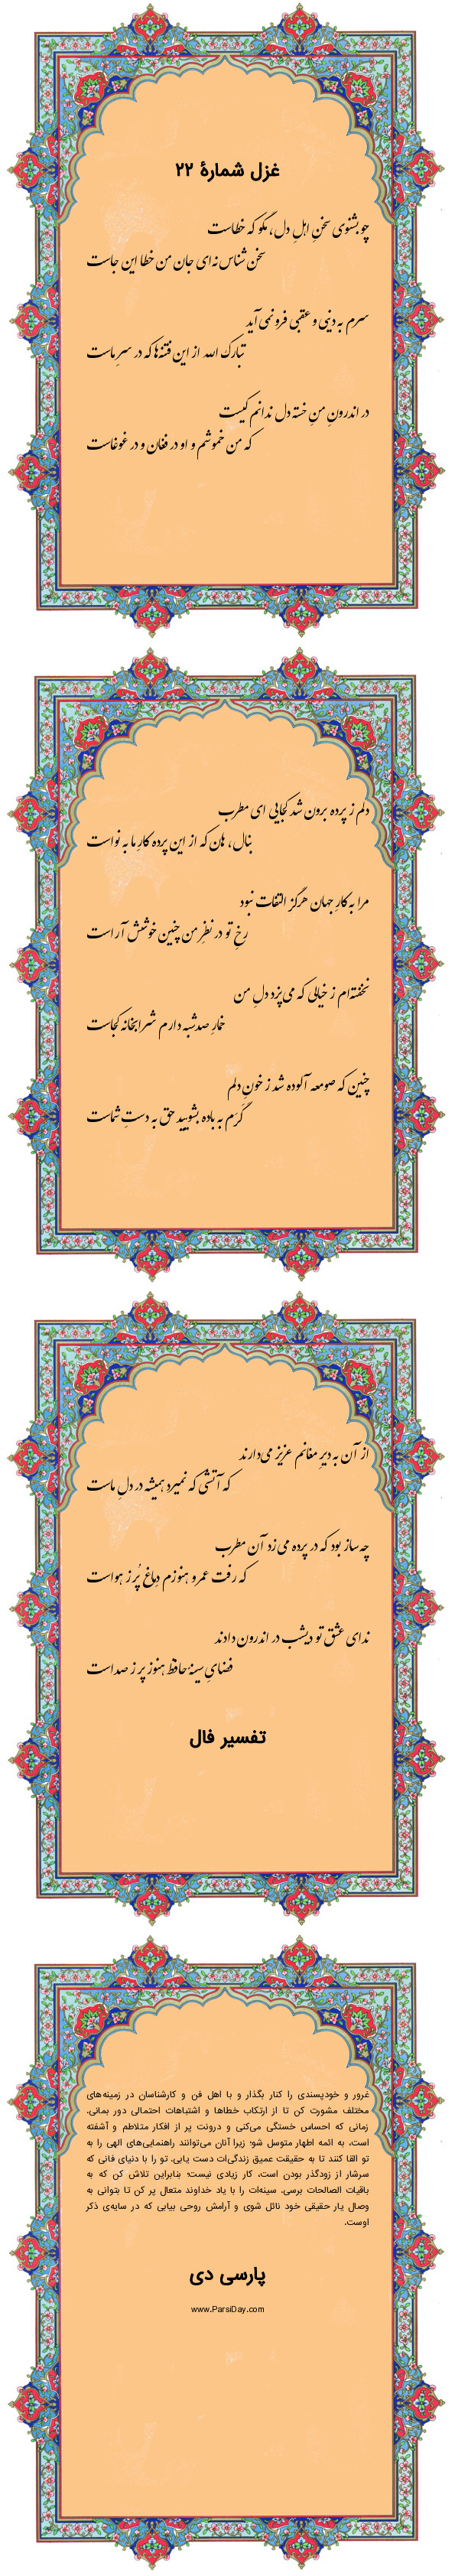 غزل شمارهٔ ۲۲
چو بشنوی سخنِ اهلِ دل، مگو که خطاست
سخن شناس نه‌ای جان من خطا این جاست
سرم به دنیی و عقبی فرو نمی‌آید
تبارک الله از این فتنه‌ها که در سرِ ماست
در اندرونِ منِ خسته دل ندانم کیست
که من خموشم و او در فغان و در غوغاست
دلم ز پرده برون شد کجایی ای مطرب
بنال، هان که از این پرده کارِ ما به نواست
مرا به کارِ جهان هرگز التفات نبود
رخِ تو در نظرِ من چنین خوشش آراست
نخفته‌ام ز خیالی که می‌پزد دلِ من
خمارِ صدشبه دارم شرابخانه کجاست
چنین که صومعه آلوده شد ز خونِ دلم
گَرَم به باده بشویید حق به دستِ شماست
از آن به دیرِ مغانم عزیز می‌دارند
که آتشی که نمیرد همیشه در دلِ ماست
چه ساز بود که در پرده می‌زد آن مطرب
که رفت عمر و هنوزم دِماغ پُر ز هواست
ندای عشق تو دیشب در اندرون دادند
فضایِ سینهٔ حافظ هنوز پر ز صداست
تفسیر فال
غرور و خودپسندی را کنار بگذار و با اهل فن و کارشناسان در زمینه‌های
مختلف مشورت کن تا از ارتکاب خطاها و اشتباهات احتمالی دور بمانی.
زمانی که احساس خستگی می‌کنی و درونت پر از افکار متلاطم و آشفته
است، به ائمه اطهار متوسل شو؛ زیرا آنان می‌توانند راهنمایی‌های الهی را به
تو القا کنند تا به حقیقت عمیق زندگی‌ات دست یابی. تو را با دنیای فانی که
سرشار از زودگذر بودن است، کار زیادی نیست؛ بنابراین تلاش کن که به
باقیات الصالحات برسی. سینه‌ات را با یاد خداوند متعال پر کن تا بتوانی به
وصال یار حقیقی خود نائل شوی و آرامش روحی بیابی که در سایه‌ی ذکر
اوست.
پارسی دی
www.ParsiDay.com